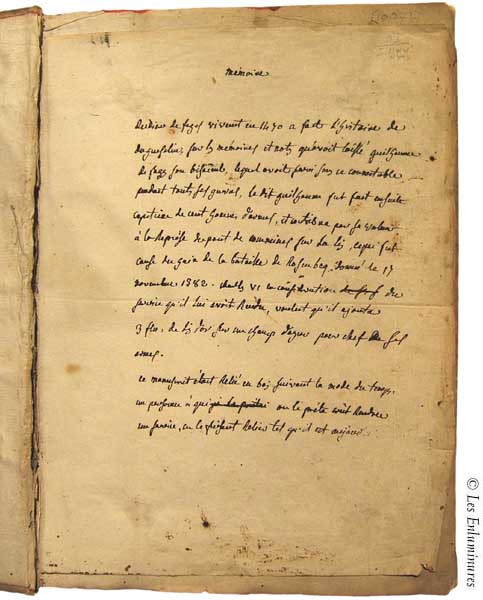 mémoire
de fages vivent en 1470 a fait l'histoire de
duguesclin, sur les mémoires et nots qu'avoit laissé guilhaume
de fages son bisaieul, lequel avoit servi sous ce connoitable
pendant touts ses guerres, le dit guilhaume fut fait ensuite
capitaine de cent homes d'armes, et contribua par sa valeur
à la reprise du pont de commines sur la lis, ce qui fut
cause du gain de la bataille de Rosembeq, donné le 17
novembre 1382. charles VI en considération du
service qu'il lui avoit rendu, voulent qu'il ajouta
3 fleurs de lis d'or sur un champ d'azur pour chef de ses
armes.
ce manuscrit étant relié en bois suivant la mode du temps,
un personne à qui on le prêta crût rendre
un service, en le faisent relier tel qu'il est aujourd
© Les Enluminures